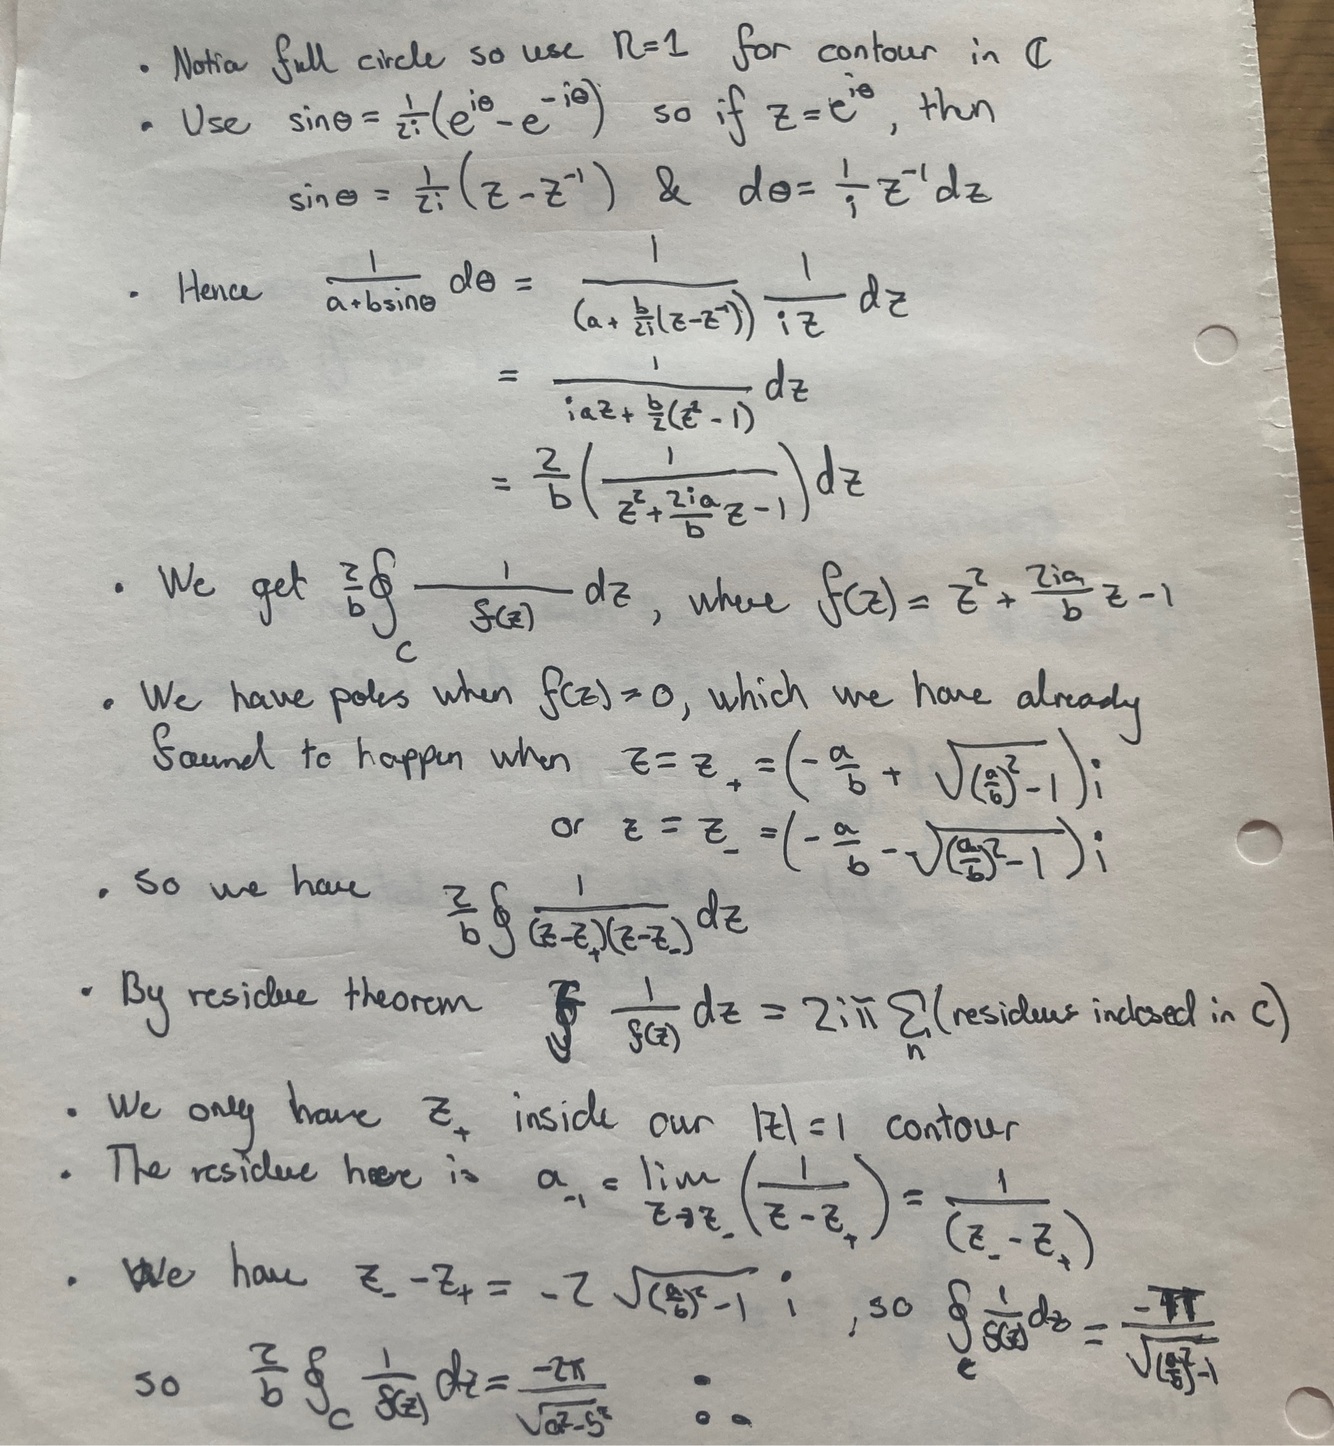 • Notice full circle so use R=1 for contour in ℂ
• Use sinθ = 1/2i (e^{iθ} - e^{-iθ}) so if z = e^{iθ}, then
sinθ = 1/2i (z - z^{-1}) & dθ = 1/i z^{-1} dz
• Hence 1/(a+bsinθ) dθ = 1/(a + b/2i (z - z^{-1})) 1/(iz) dz
= 1/(iaz + b/2 (z² - 1)) dz
= 2/b (1/(z² + 2ia/b z - 1)) dz
• We get 2/b ∮_C 1/f(z) dz, where f(z) = z² + 2ia/b z - 1
• We have poles when f(z) = 0, which we have already
found to happen when z = z₊ = (-a/b + √((a/b)² - 1)) i
or z = z₋ = (-a/b - √((a/b)² - 1)) i
• So we have 2/b ∮ 1/((z-z₊)(z-z₋)) dz
• By residue theorem ∮ 1/f(z) dz = 2iπ Σ_n (residues inclosed in C)
• We only have z₊ inside our |z| = 1 contour
• The residue here is a₋₁ = lim_{z→z₋} (1/(z - z₊)) = 1/(z₋ - z₊)
• We have z₋ - z₊ = -2 √((a/b)² - 1) i, so ∮_C 1/f(z) dz = -π/√((a/b)² - 1)
so 2/b ∮_C 1/f(z) dz = -2π/√(a² - b²) ∴